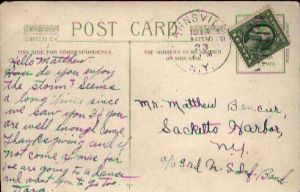 POST CARD
THIS SIDE FOR CORRESPONDENCE.
INSVIL
N.Y.
23
Hello Matthew
How do you enjoy
the storm? Seems
a long time since
we saw you. If you
are well enough come
Thanksgiving and if
not come Xmas for
we are going to a dance
and want you to go too.
Mr. Matthew
Sacketts Harbor,
N.Y.
c/o 3rd Band